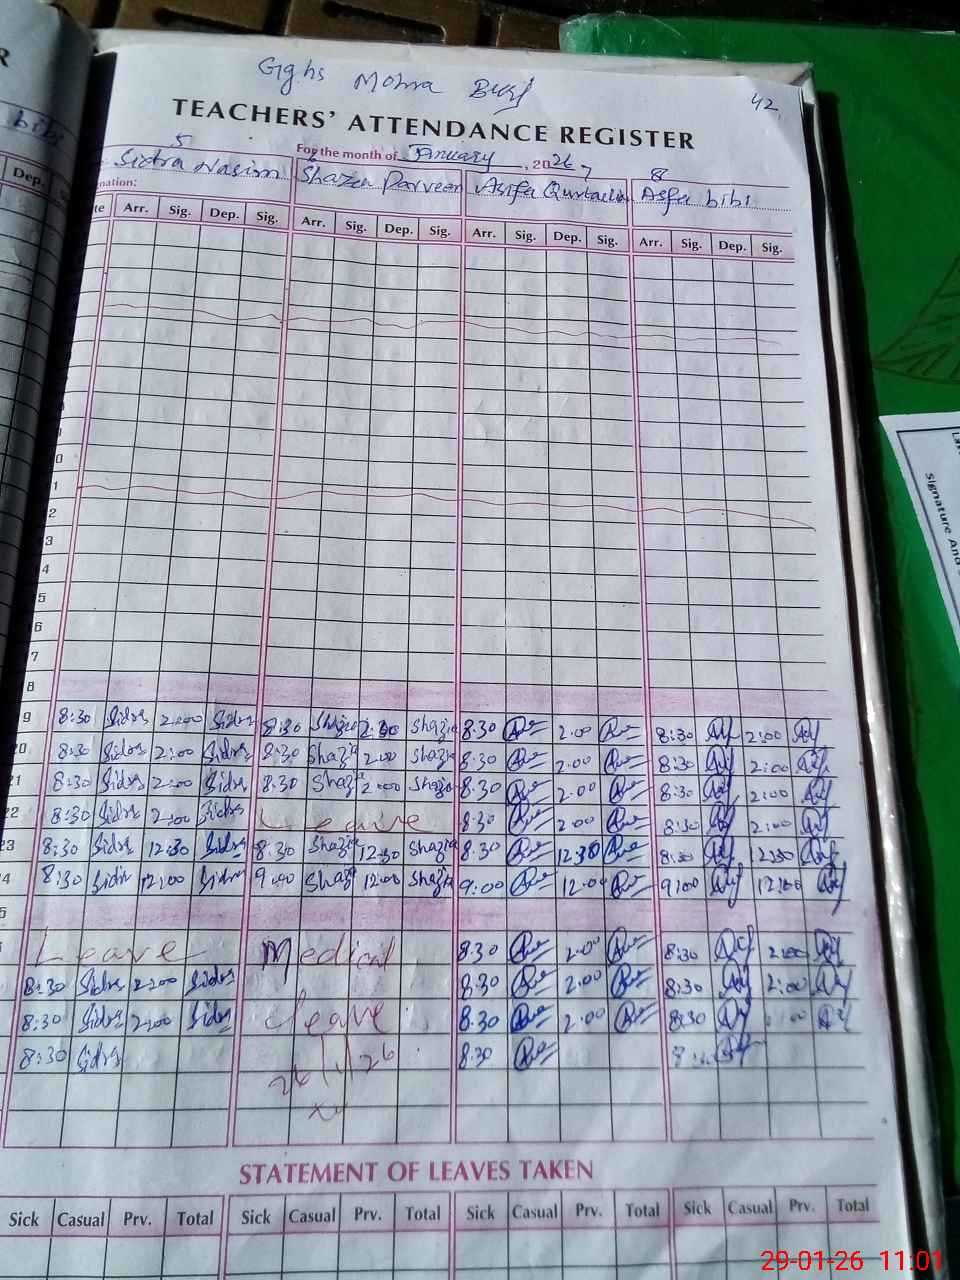 R
Gghs Mohra
42
TEACHERS' ATTENDANCE REGISTER
For the month of January, 2026
bibi
5 7 8
Sidra Nasim Shazia Parveen Asifa Asfa bibi
nation:
Dep.
te Arr. Sig. Dep. Sig. Arr. Sig. Dep. Sig. Arr. Sig. Dep. Sig. Arr. Sig. Dep. Sig.
0
1
2
3
4
5
6
7
8
9 8:30 Sidra 2:00 Sidra 8:30 Shazia 2:00 Shazia 8.30 2.00 8:30 2:00
20 8:30 Sidra 2:00 Sidra 8:30 Shazia 2:00 Shazia 8.30 2.00 8:30 2:00
21 8:30 Sidra 2:00 Sidra 8:30 Shazia 2:00 Shazia 8.30 2.00 8:30 2:00
22 8:30 Sidra 2:00 Sidra Leave 8.30 2.00 8:30 2:00
23 8:30 Sidra 12:30 Sidra 8:30 Shazia 12:30 Shazia 8.30 12.30 8:30 12:30
4 8:30 Sidra 12:00 Sidra 9:00 Shazia 12:00 Shazia 9:00 12.00 9:00 12:00
5
Leave Medical 8.30 2.00 8:30 2:00
8:30 Sidra 2:00 Sidra 8.30 2.00 8:30 2:00
8:30 Sidra 2:00 Sidra leave 8.30 2.00 8:30
8:30 Sidra 26/1/26 8.30
STATEMENT OF LEAVES TAKEN
Sick Casual Prv. Total Sick Casual Prv. Total Sick Casual Prv. Total Sick Casual Prv. Total
Signature And
29-01-26 11:01